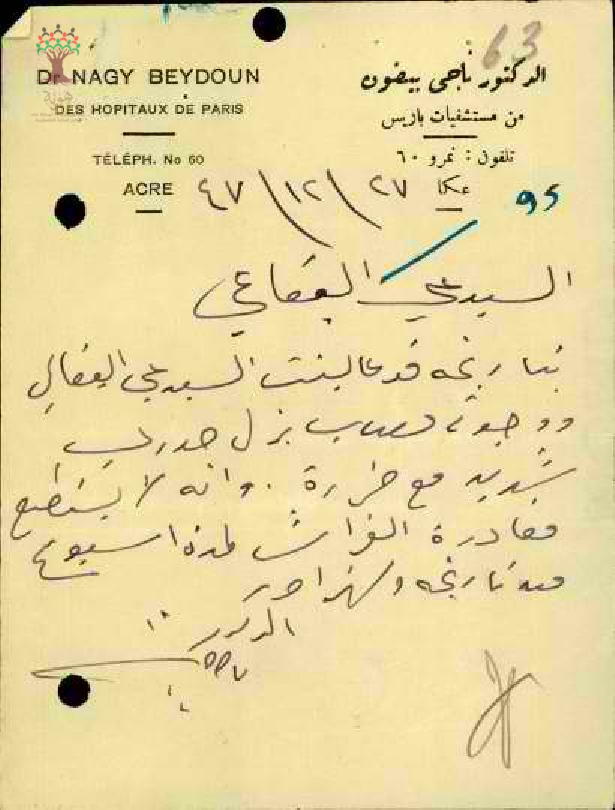 63
Dr NAGY BEYDOUN
DES HOPITAUX DE PARIS
TÉLÉPH. No 60
ACRE
الدكتور ناجي بيضون
من مستشفيات باريس
تلفون : نمرو ٦٠
عكا
٢٧\١٢\٤٧
95
السيد علي البقاعي
بتاريخه قد عاينت السيد علي البقاعي
ووجدته مصاب بنزل صدري
شديد مع حرارة . وانه لا يستطيع
مغادرة الفراش لمدة اسبوع
من تاريخه ولهذا حرر
الدكتور